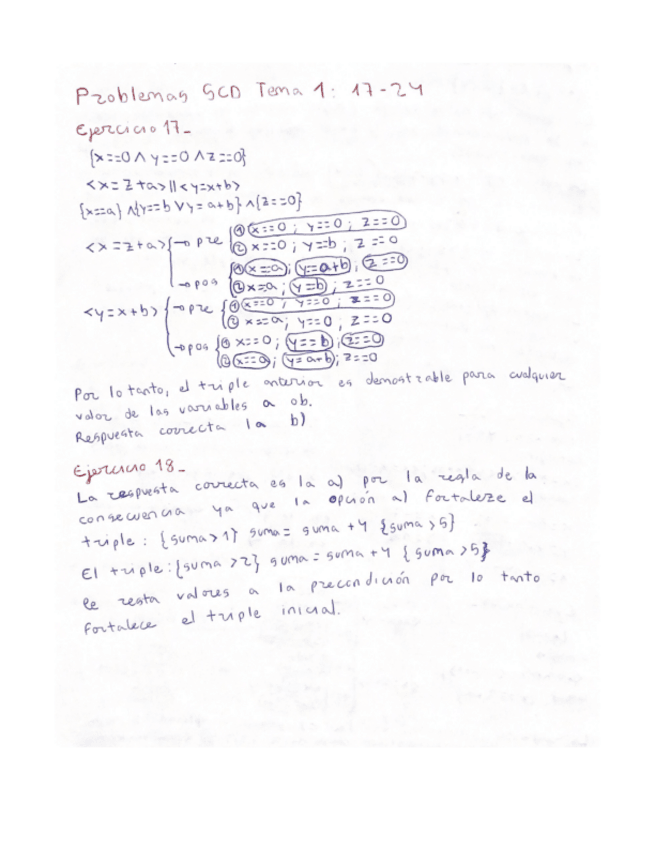 Problemas SCD Tema 1: 17-24
Ejercicio 17_
{x==0 ∧ y==0 ∧ z==0}
<x=z+a>||<y=x+b>
{x==a} ∧ {y==b ∨ y=a+b} ∧ {z==0}
<x=z+a> { → pre { ① x==0 ; y==0 ; z==0
② x==0 ; y==b ; z==0
① x==a ; y==a+b ; z==0
→ pos { ② x==a ; y=b ; z==0
<y=x+b> { → pre { ① x==0 ; y==0 ; z==0
② x==a ; y==0 ; z==0
→ pos { ① x==0 ; y==b ; z==0
② x==a ; y=a+b ; z==0
Por lo tanto, el triple anterior es demostrable para cualquier
valor de las variables a ob.
Respuesta correcta la b)
Ejercicio 18_
La respuesta correcta es la a) por la regla de la
consecuencia ya que la opción a) fortaleze el
triple : {suma>1} suma = suma +4 {suma >5}
El triple : {suma >2} suma = suma +4 { suma >5}
le resta valores a la precondición por lo tanto
fortalece el triple inicial.